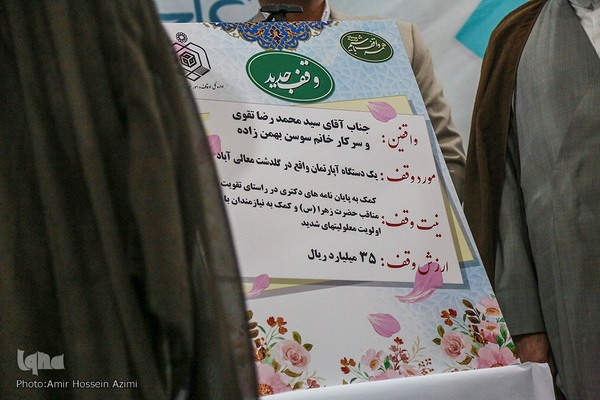 وقف جدید
واقفین :
جناب آقای سید محمد رضا تقوی
و سرکار خانم سوسن بهمن زاده
مورد وقف :
یک دستگاه آپارتمان واقع در گلدشت معالی آباد
نیت وقف :
کمک به پایان نامه های دکتری در راستای تقویت
مناقب حضرت زهرا (س) و کمک به نیازمندان با
اولویت معلولیتهای شدید
ارزش وقف :
۳۵ میلیارد ریال
iqna
Photo:Amir Hossein Azimi